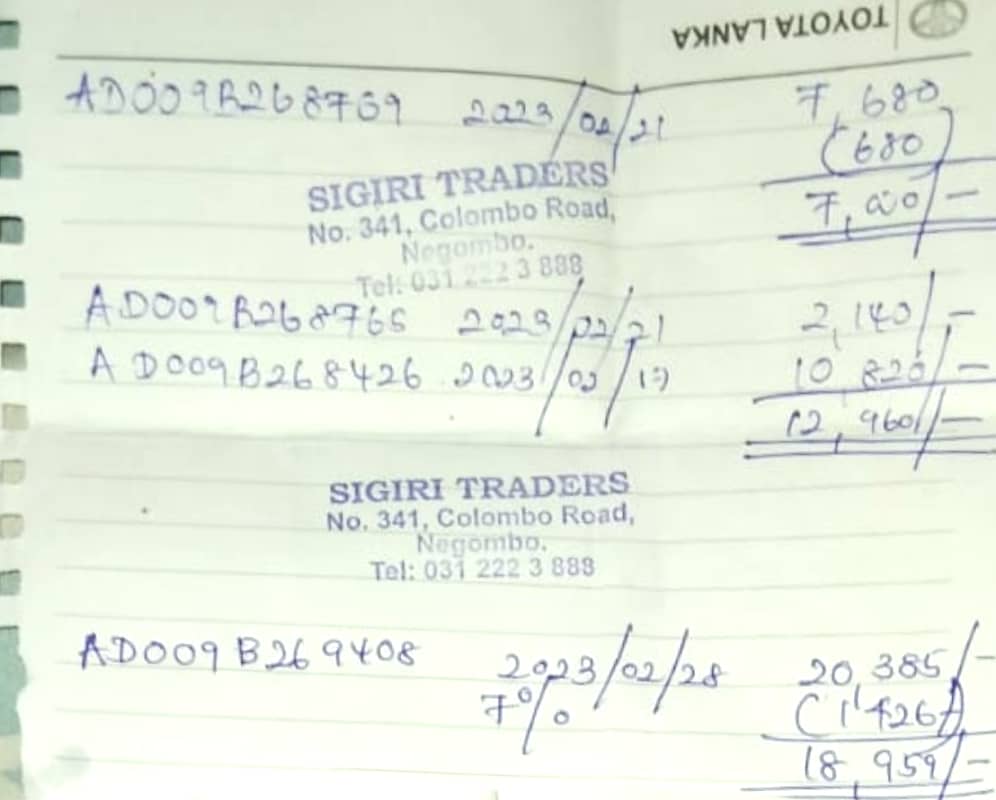 TOYOTA LANKA
AD009B268769 2023/02/21 7,680
(680)
7,000/-
SIGIRI TRADERS
No. 341, Colombo Road,
Negombo.
Tel: 031 222 3 888
AD009B268765 2023/02/21 2,140/-
AD009B268426 2023/02/17 10,820/-
12,960/-
SIGIRI TRADERS
No. 341, Colombo Road,
Negombo.
Tel: 031 222 3 888
AD009B269408 2023/02/28 20,385/-
7% (1,426)
18,959/-